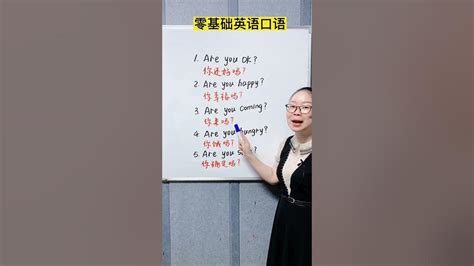 零基础英语口语
1. Are you OK?
你还好吗?
2. Are you happy?
你幸福吗?
3. Are you coming?
你来吗?
4. Are you hungry?
你饿吗?
5. Are you
你确定吗?